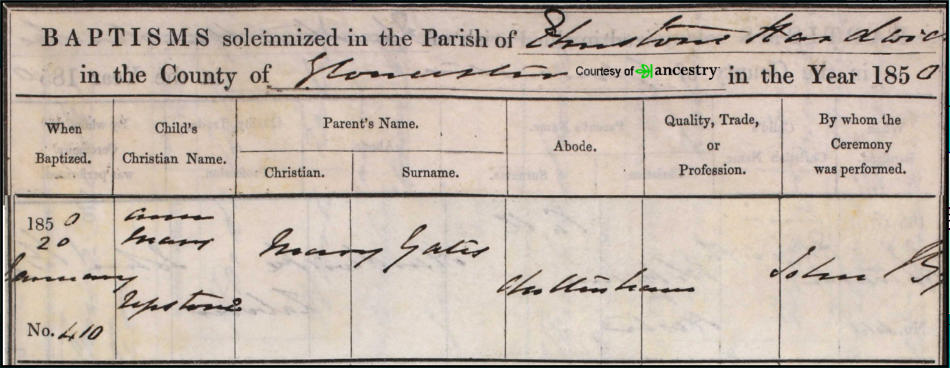 BAPTISMS solemnized in the Parish of Elmstone Hardwic
in the County of Gloucester Courtesy of ancestry in the Year 1850
When Baptized.
Child's Christian Name.
Parent's Name.
Christian.
Surname.
Abode.
Quality, Trade, or Profession.
By whom the Ceremony was performed.
1850
20
January
No. 410
Ann
Mary
Upstone
Mary Yates
Cheltenham
John